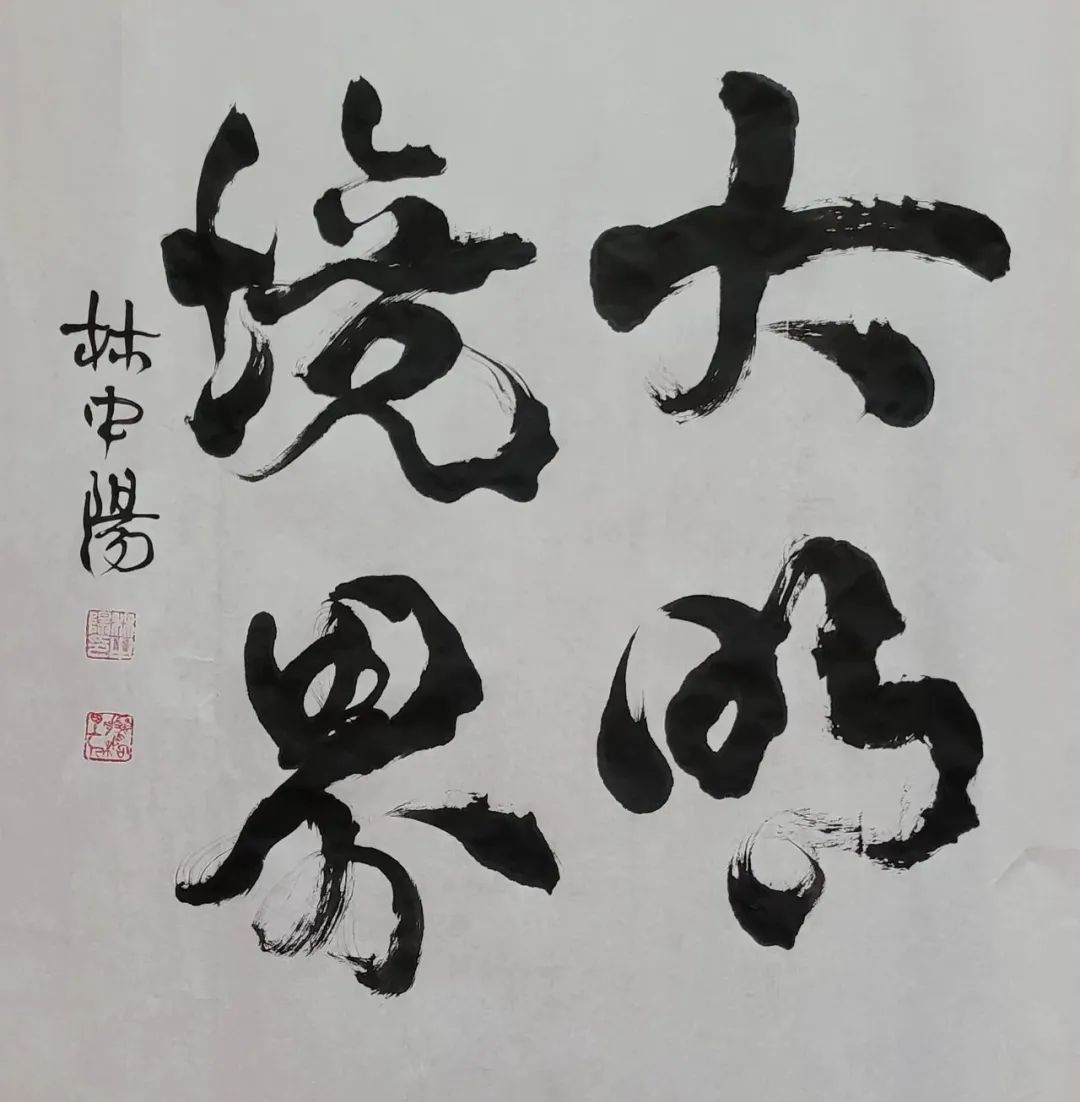 大明
境界
林中陽